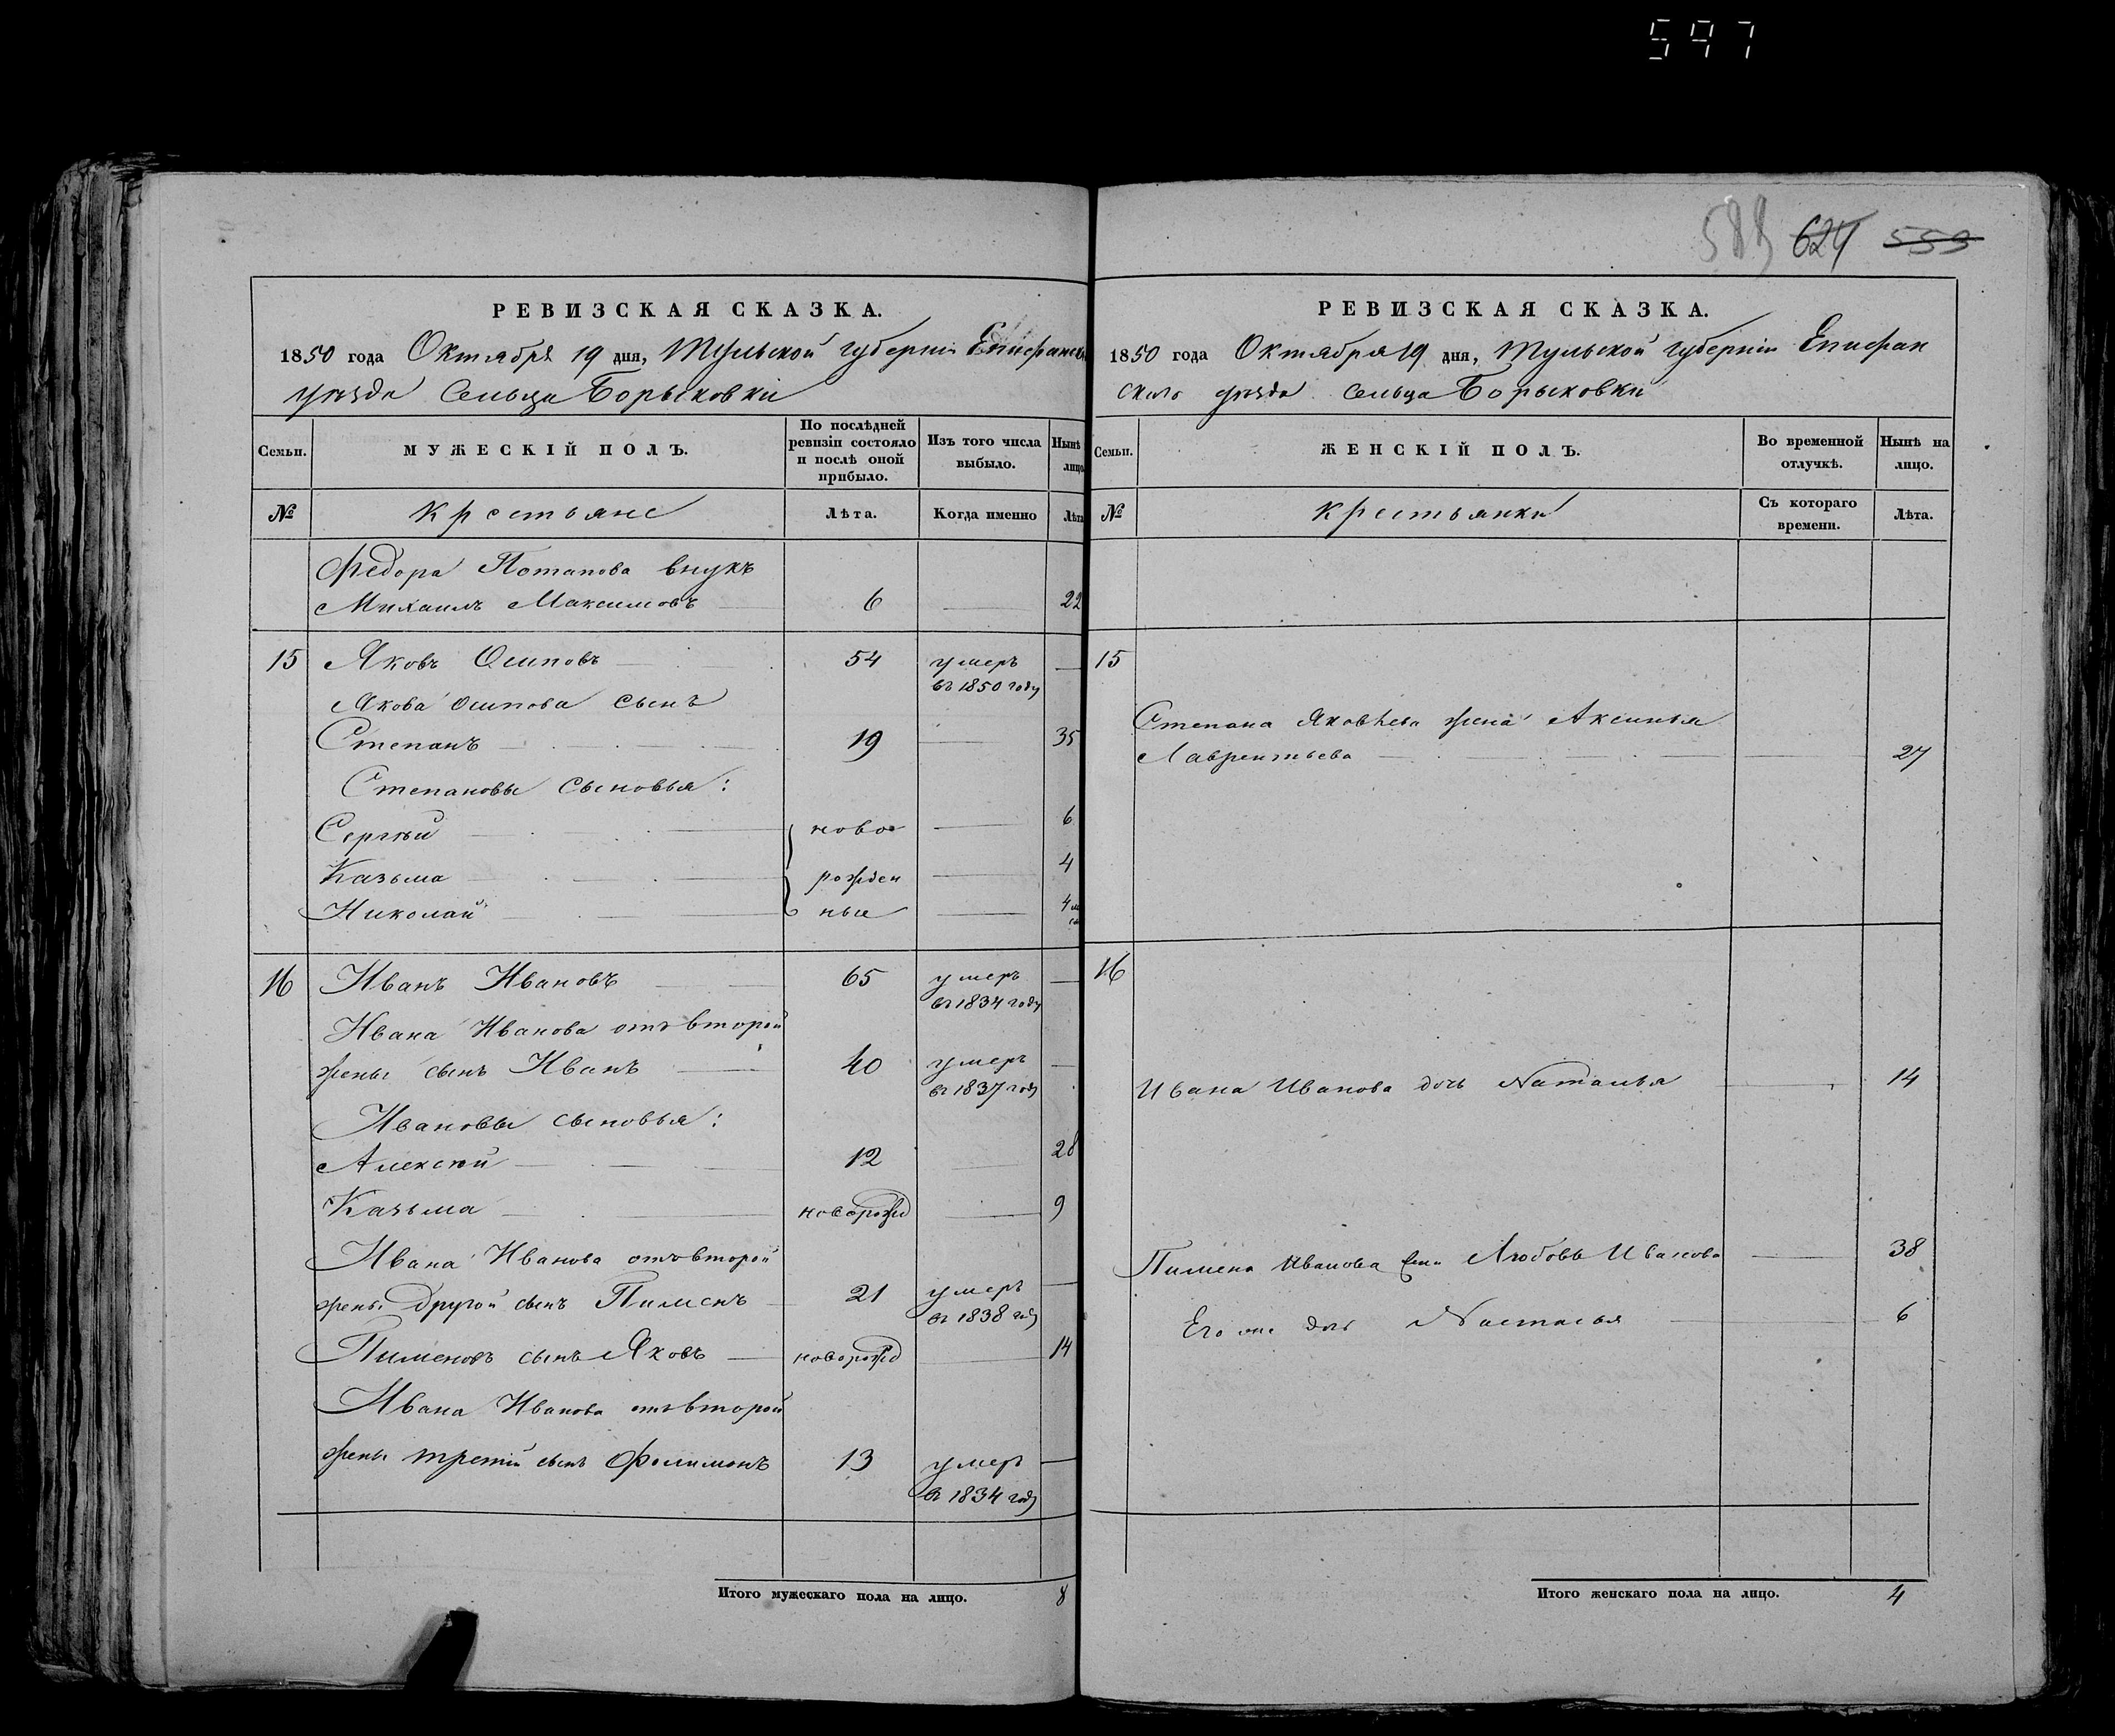 597
589 624 553
РЕВИЗСКАЯ СКАЗКА.
1850 года Октября 19 дня, Тульской губерніи Епифанскаго
уѣзда Сельца Борыковки
Семьи. МУЖЕСКІЙ ПОЛЪ. По послѣдней ревизіи состояло и послѣ оной прибыло. Изъ того числа выбыло. Нынѣ на лицо.
№ Крестьяне Лѣта. Когда именно Лѣта
Федора Потапова внукъ
Михаилъ Максимовъ 6 22
15 Яковъ Осиповъ 54 умеръ
въ 1850 году
Якова Осипова сынъ
Степанъ 19 35
Степановы сыновья:
Сергѣй ново 6
Казьма рожден 4
Николай ные 4 м
16 Иванъ Ивановъ 65 умеръ
въ 1834 году
Ивана Иванова отъ второй
жены сынъ Иванъ 40 умеръ
въ 1837 году
Ивановы сыновья:
Алексѣй 12 28
Казьма новорожд 9
Ивана Иванова отъ второй
жены другой сынъ Пименъ 21 умеръ
въ 1838 году
Пименовъ сынъ Яковъ новорожд 14
Ивана Иванова отъ второй
жены третій сынъ Филимонъ 13 умеръ
въ 1834 году
Итого мужескаго пола на лицо. 8
РЕВИЗСКАЯ СКАЗКА.
1850 года Октября 19 дня, Тульской губерніи Епифан
скаго уѣзда сельца Борыковки
Семьи. ЖЕНСКІЙ ПОЛЪ. Во временной отлучкѣ. Нынѣ на лицо.
№ Крестьянки Съ котораго времени. Лѣта.
15
Степана Яковлева жена Аксинья
Лаврентьева 27
16
Ивана Иванова дочь Наталья 14
Пимена Иванова Любовь Иванова 38
Его же дочь Настасья 6
Итого женскаго пола на лицо. 4